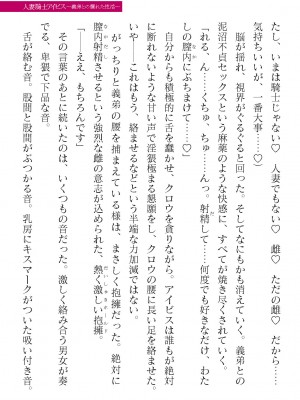 人妻騎士アイビス ―義弟との爛れた性活―
たし、いまは騎士じゃない♡ 人妻でもない♡ 雌♡ ただの雌♡ だから……
気持ちいいが、一番大事……♡」
脳が揺れ、視界がぐるぐると回った。そしてなにもかも消えていく。義弟との
泥沼不貞セックスという麻薬のような快感に、すべてが焼き尽くされていく。
「れる、ん……くちゅ、ちゅ……んっ。射精して……何度でも好きなだけ、わた
しの膣内にぶちまけて……♡」
自分からも積極的に舌を蠢かせ、クロウを貪りながら。アイビスは誰もが絶対
に断れないような甘い声で淫猥極まる懇願をし、クロウの腰に長い足を絡ませた。
いや――これはもう、絡ませるなどという半端な力加減ではない。
がっちりと義弟の腰を捕まえている様は、まさしく抱擁だった。絶対に
膣内射精させるという強烈な雌の意志が込められた、熱く激しい抱擁。
「――ええ、もちろんです」
その言葉のあとに続いたのは、いくつもの音だった。激しく絡み合う男女が奏
でる、卑猥で下品な音。
舌が絡む音。股間と股間がぶつかる音。乳房にキスマークがついた吸い付き音。